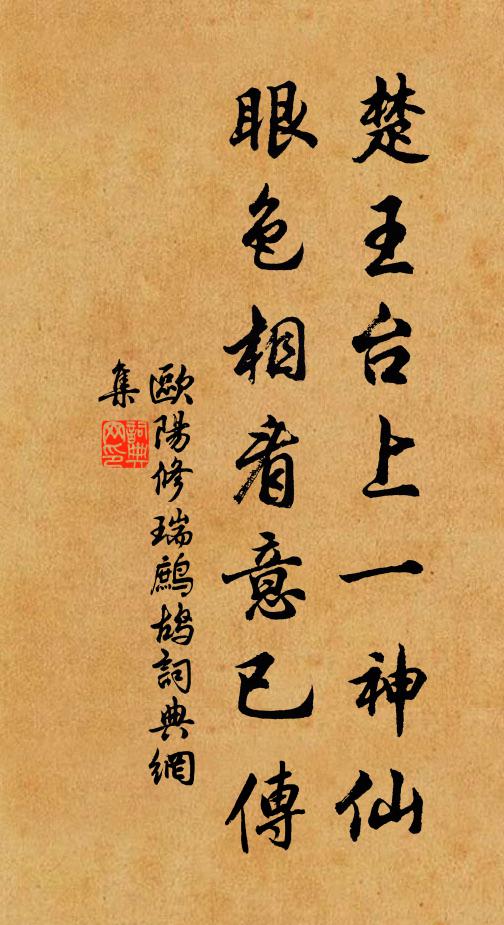 楚王台上一神仙
眼色相看意已傳
歐陽修瑞鷓鴣詞典網
集
詞典網印